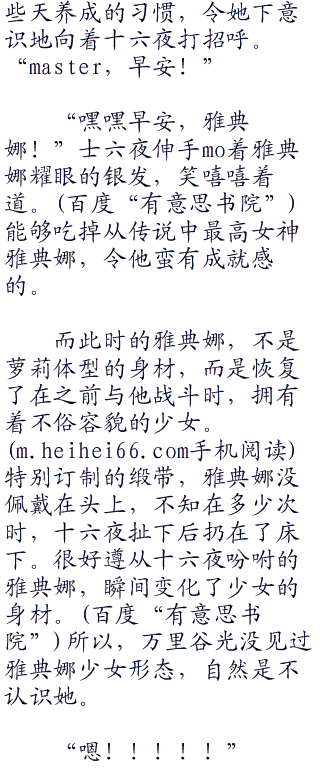 些天养成的习惯，令她下意
识地向着十六夜打招呼。
“master，早安！”
“嘿嘿早安，雅典
娜！”士六夜伸手mo着雅典
娜耀眼的银发，笑嘻嘻着
道。(百度“有意思书院”)
能够吃掉从传说中最高女神
雅典娜，令他蛮有成就感
的。
而此时的雅典娜，不是
萝莉体型的身材，而是恢复
了在之前与他战斗时，拥有
着不俗容貌的少女。
(m.heihei66.com手机阅读)
特别订制的缎带，雅典娜没
佩戴在头上，不知在多少次
时，十六夜扯下后扔在了床
下。很好遵从十六夜吩咐的
雅典娜，瞬间变化了少女的
身材。(百度“有意思书
院”)所以，万里谷光没见过
雅典娜少女形态，自然是不
认识她。
“嗯！！！！！”